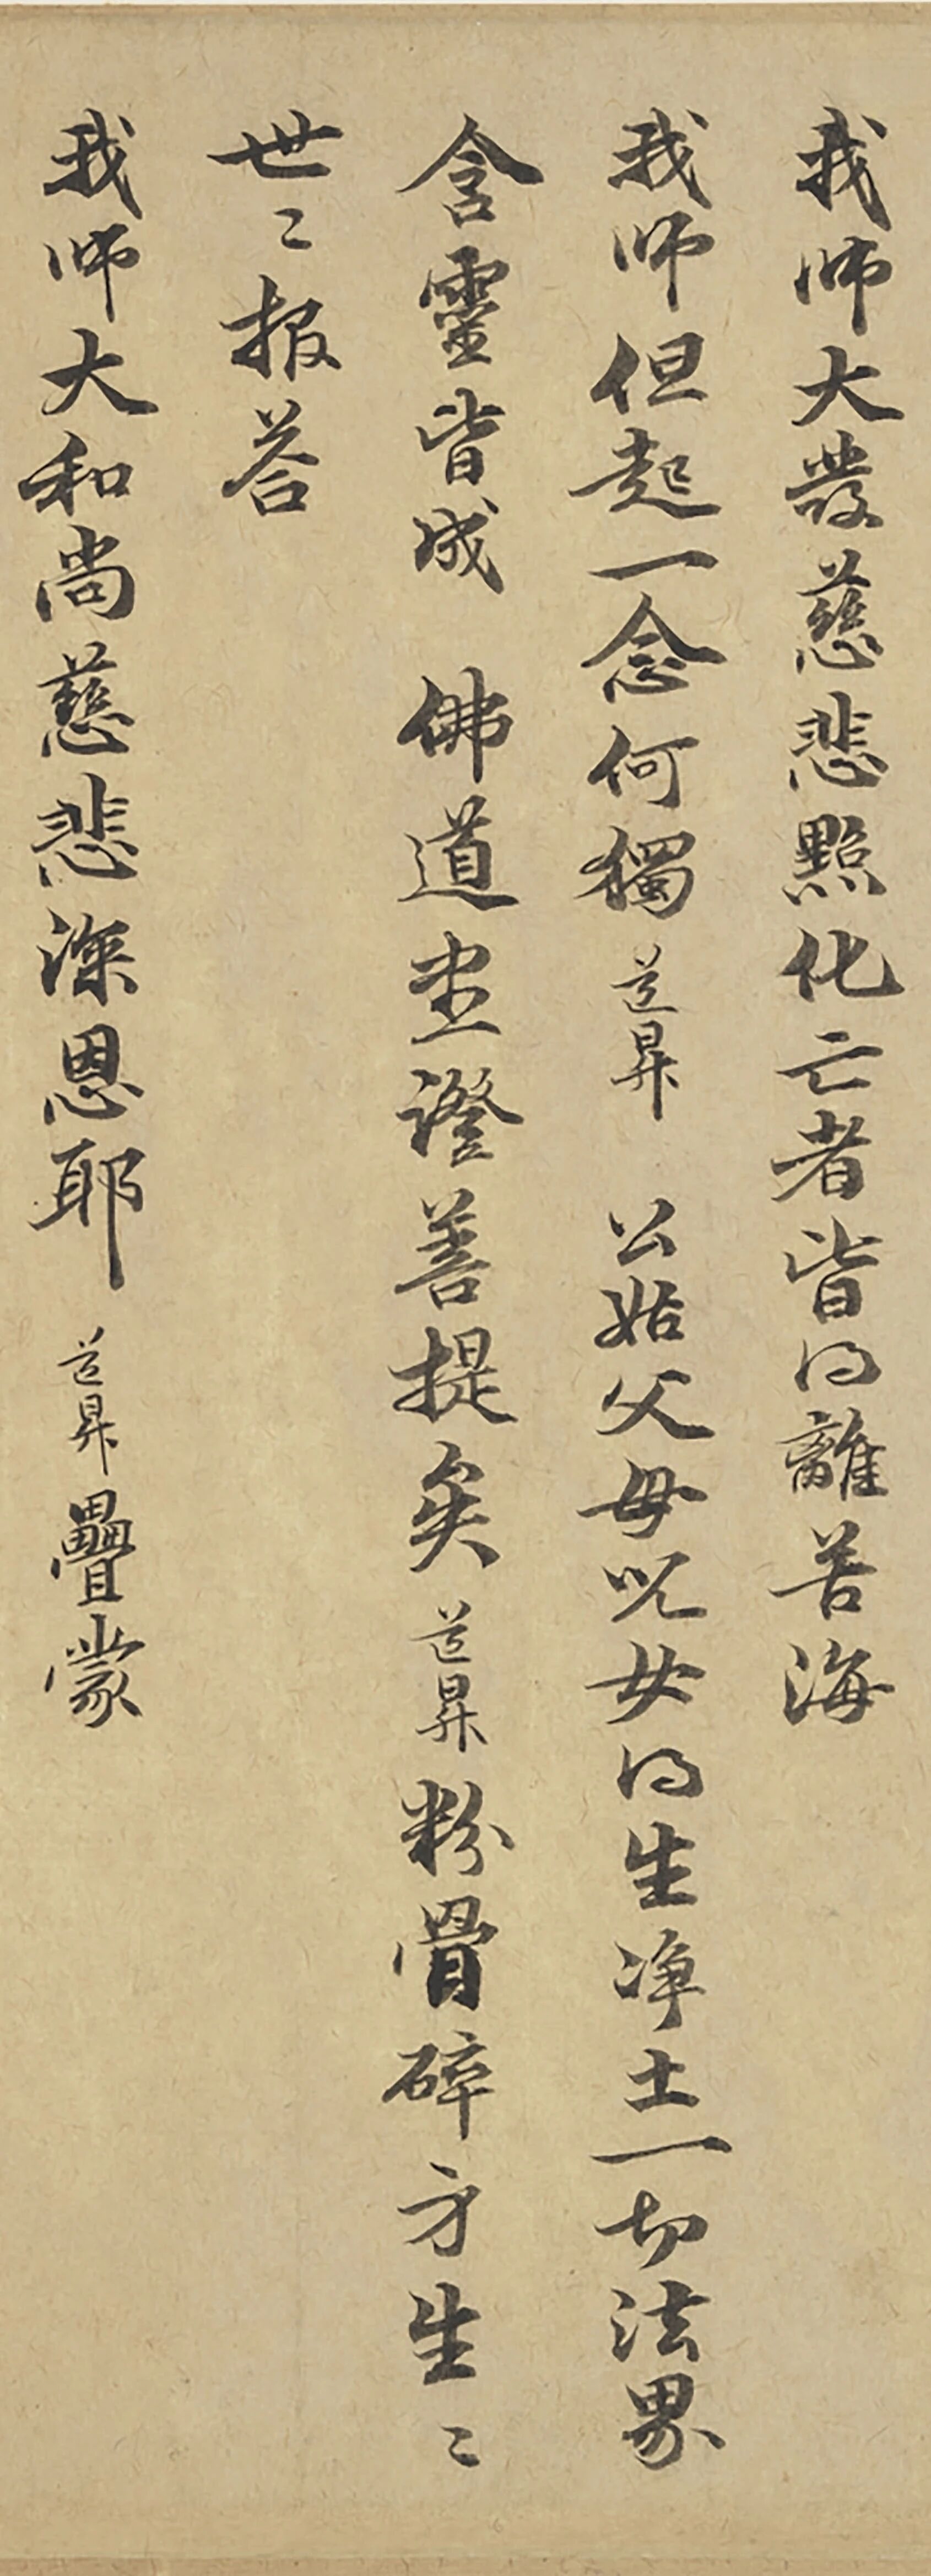 我师大發慈悲點化亡者皆得離苦海
我师但起一念何獨道昇 公姑父母児女得生净土一切法界
含靈皆成 佛道坐證菩提矣道昇粉骨碎身生〻
世〻报荅
我师大和尚慈悲深恩耶 道昇疊蒙